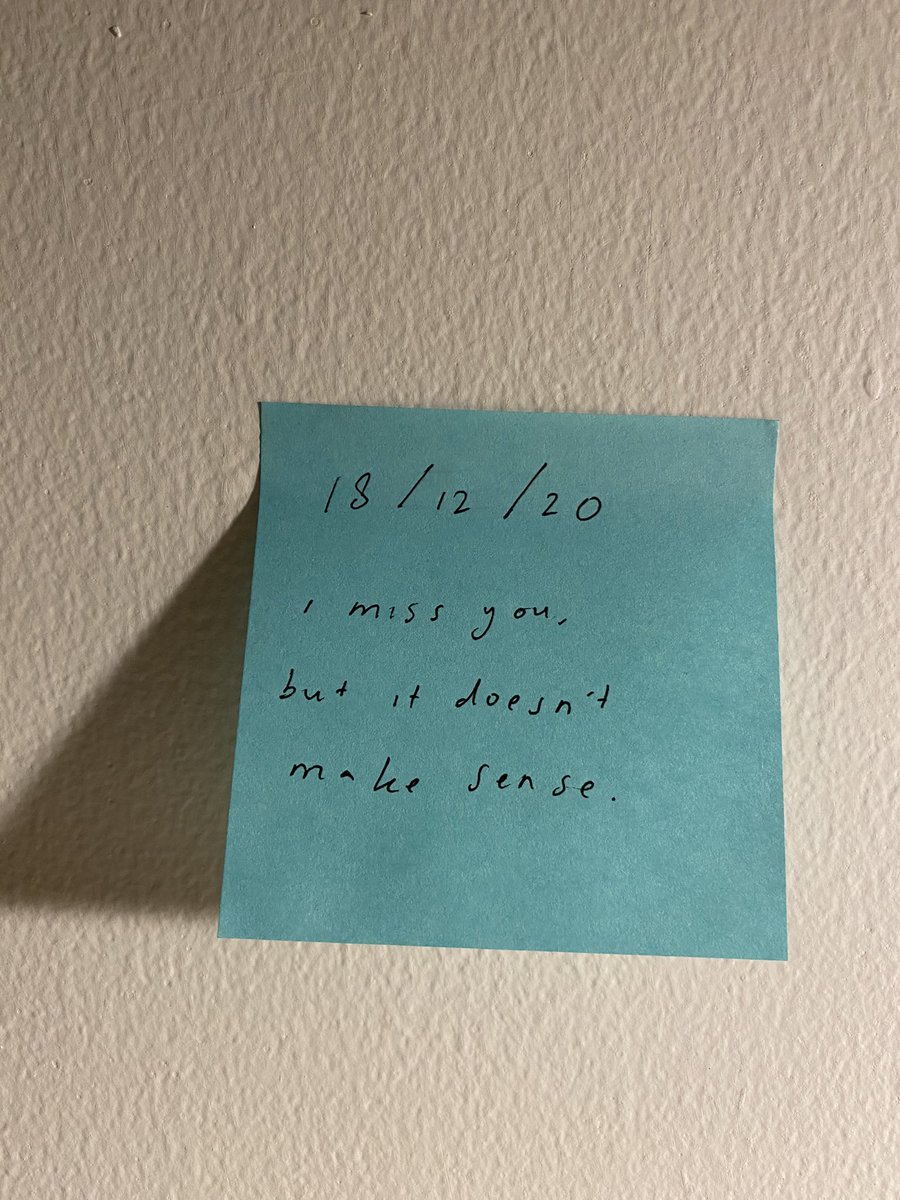 18/12/20
i miss you,
but it doesn't
make sense.